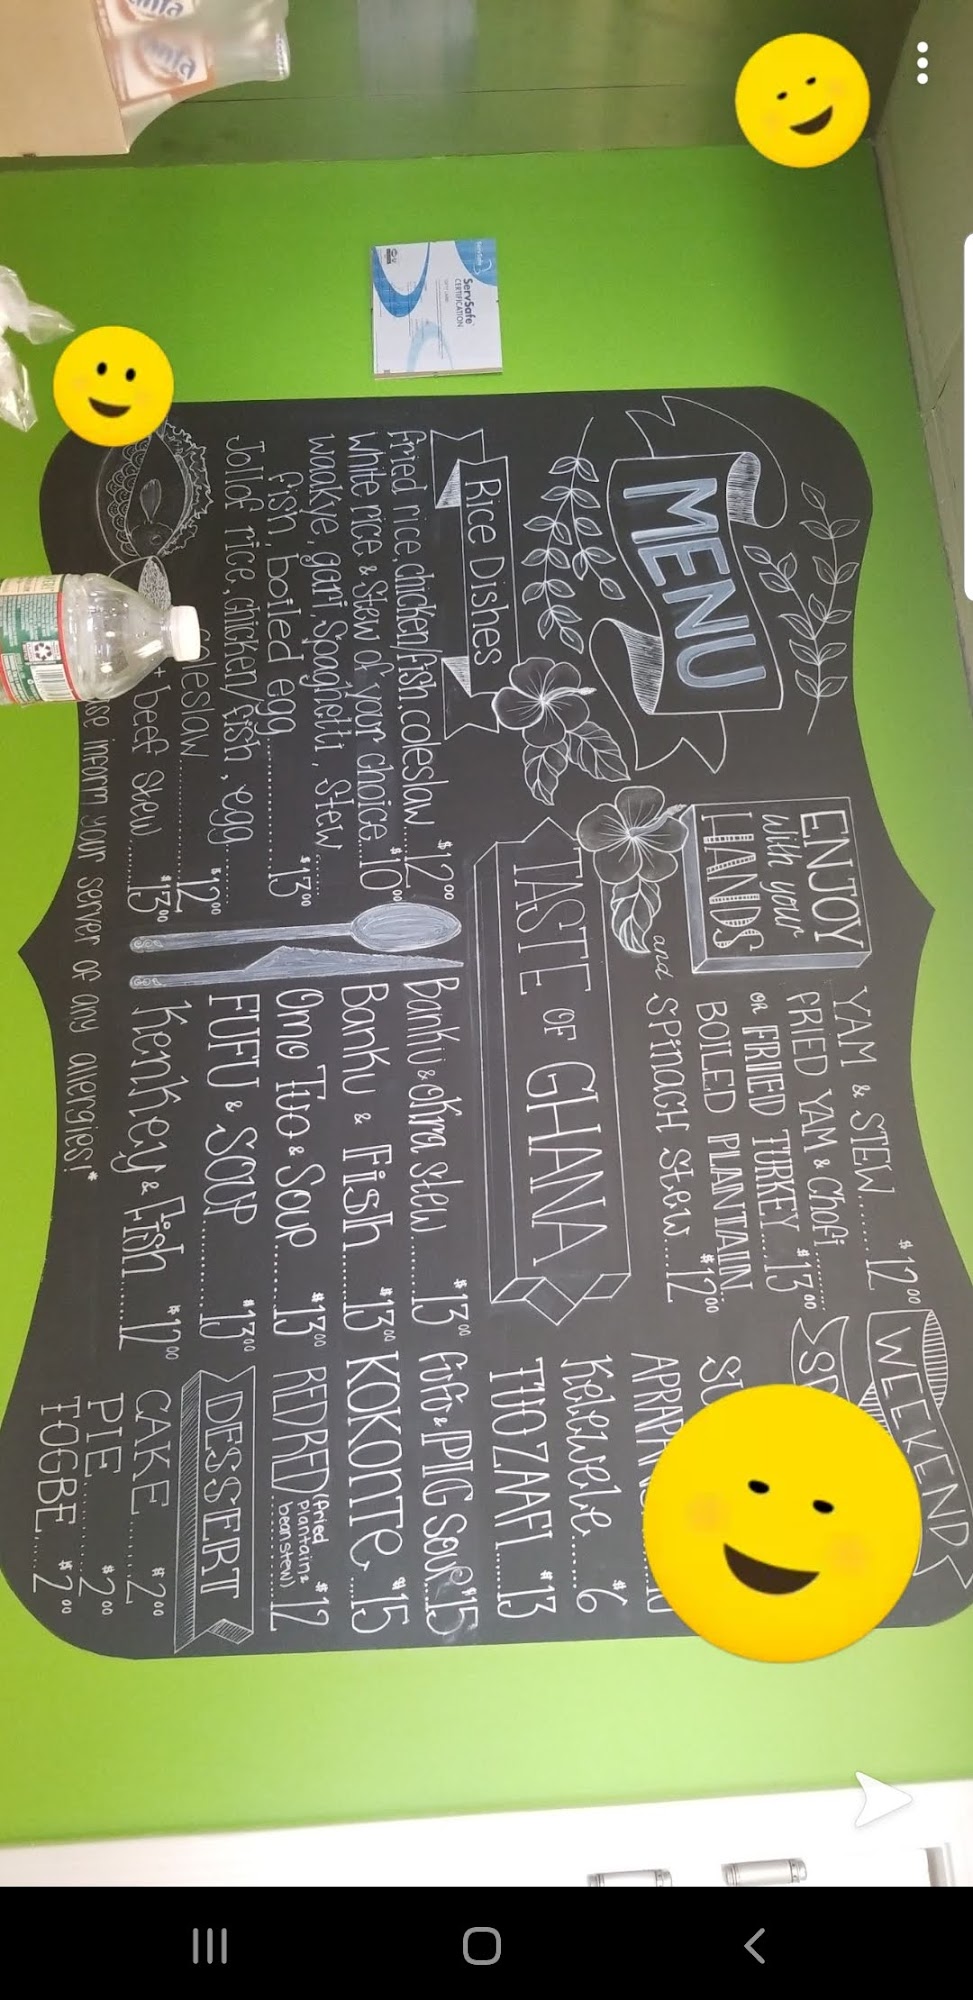 MENU
Rice Dishes
Fried rice, chicken/fish, coleslaw $12.00
White rice & Stew of your choice $10.00
Waakye, gari, Spaghetti, Stew
fish, boiled egg $13.00
Jollof rice, chicken/fish, egg
$12.00
+ beef stew $13.00
inform your server of any allergies! *
ENJOY
with your
HANDS
TASTE OF GHANA
YAM & STEW $12.00
FRIED YAM & Chofi
OR FRIED TURKEY $13.00
BOILED PLANTAIN
and SPINACH Stew $12.00
Banku & Okra Stew $13.00
Banku & Fish $13.00
Omo Tuo & Soup $13.00
FUFU & SOUP $13.00
Kenkey & Fish $12.00
WEEKEND
Kelewele $6
TUO ZAAFI $13
Fufu & PIG SOUP $15
KOKONTE $15
RED RED (fried plantain & bean stew) $12
DESSERT
CAKE $2.00
PIE $2.00
TOGBE $2.00
ServSafe
CERTIFICATION